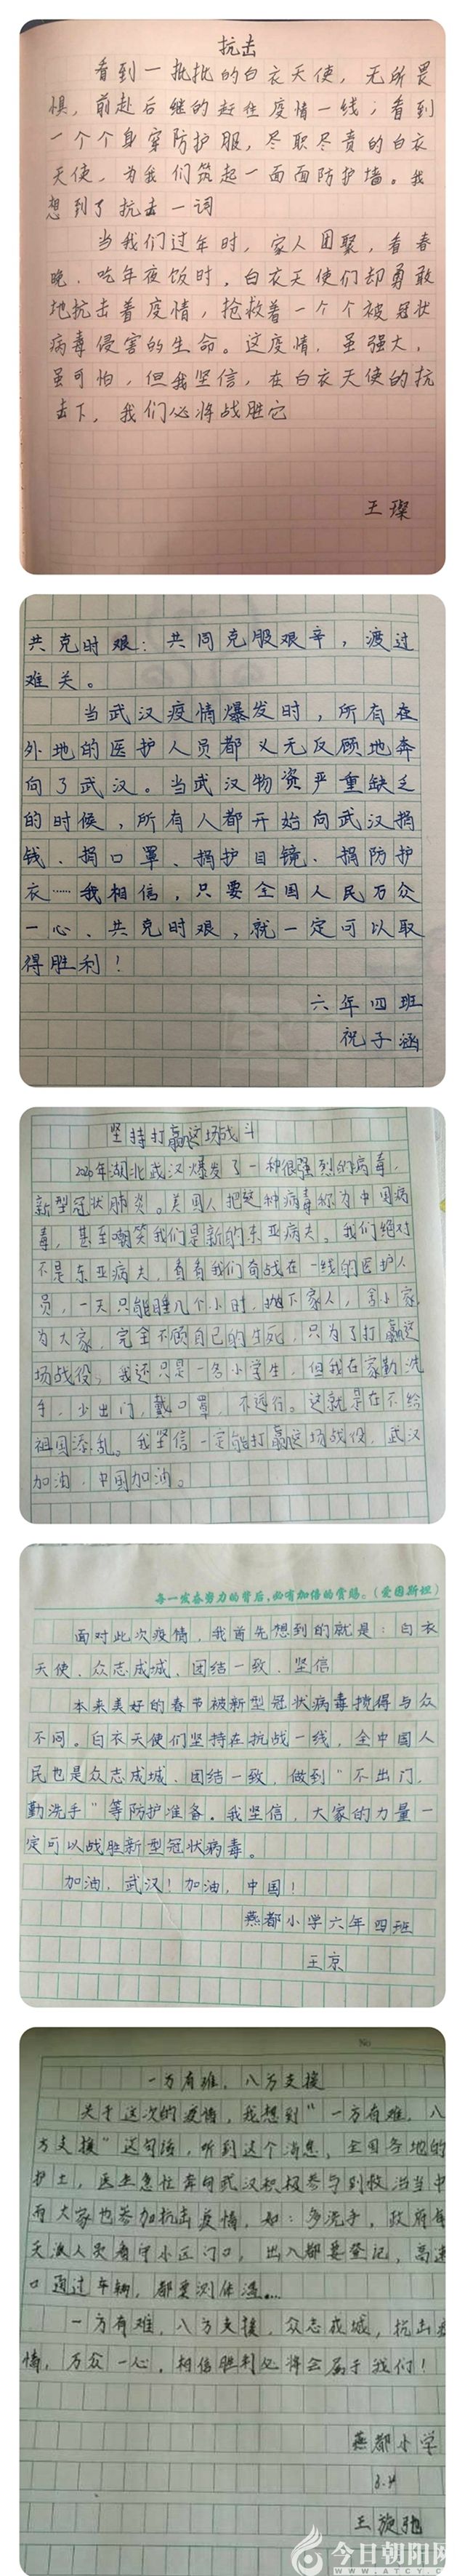 抗击
看到一批批的白衣天使，无所畏
惧，前赴后继的赶往疫情一线；看到
一个个身穿防护服，尽职尽责的白衣
天使，为我们筑起一面面防护墙。我
想到了抗击一词
当我们过年时，家人团聚，看春
晚，吃年夜饭时，白衣天使们却勇敢
地抗击着疫情，抢救着一个个被冠状
病毒侵害的生命。这疫情，虽强大，
虽可怕，但我坚信，在白衣天使的抗
击下，我们必将战胜它
王璨
共克时艰：共同克服艰辛，渡过
难关。
当武汉疫情爆发时，所有在
外地的医护人员都义无反顾地奔
向了武汉。当武汉物资严重缺乏
的时候，所有人都开始向武汉捐
钱、捐口罩、捐护目镜、捐防护
衣……我相信，只要全国人民万众
一心、共克时艰，就一定可以取
得胜利！
六年四班
祝子涵
坚持打赢这场战斗
2020年湖北武汉爆发了一种很强烈的病毒，
新型冠状肺炎。美国人把这种病毒称为中国病
毒，甚至嘲笑我们是新的东亚病夫。我们绝对
不是东亚病夫，看看我们奋战在一线的医护人
员，一天只能睡几个小时，抛下家人，舍小家
为大家，完全不顾自己的生死，只为了打赢这
场战役，我还只是一名小学生，但我在家勤洗
手，少出门，戴口罩，不远行。这就是在不给
祖国添乱。我坚信一定能打赢这场战役，武汉
加油，中国加油。
每一发奋努力的背后，必有加倍的赏赐。（爱因斯坦）
面对此次疫情，我首先想到的就是：白衣
天使、众志成城、团结一致、坚信
本来美好的春节被新型冠状病毒搅得与众
不同。白衣天使们坚持在抗战一线，全中国人
民也是众志成城、团结一致，做到“不出门，
勤洗手”等防护准备。我坚信，大家的力量一
定可以战胜新型冠状病毒。
加油，武汉！加油，中国！
燕都小学六年四班
王京
No
一方有难，八方支援
关于这次的疫情，我想到“一方有难，八
方支援”这句话，听到这个消息，全国各地的
护士，医生急忙奔向武汉积极参与到救治当中
而大家也参加抗击疫情，如：多洗手，政府每
天派人员看守小区门口，出入都要登记，高速
口通过车辆，都要测体温...
一方有难，八方支援，众志成城，抗击疫
情，万众一心，相信胜利必将会属于我们！
燕都小学
王旋
今日朝阳网
WWW.ATCY.COM